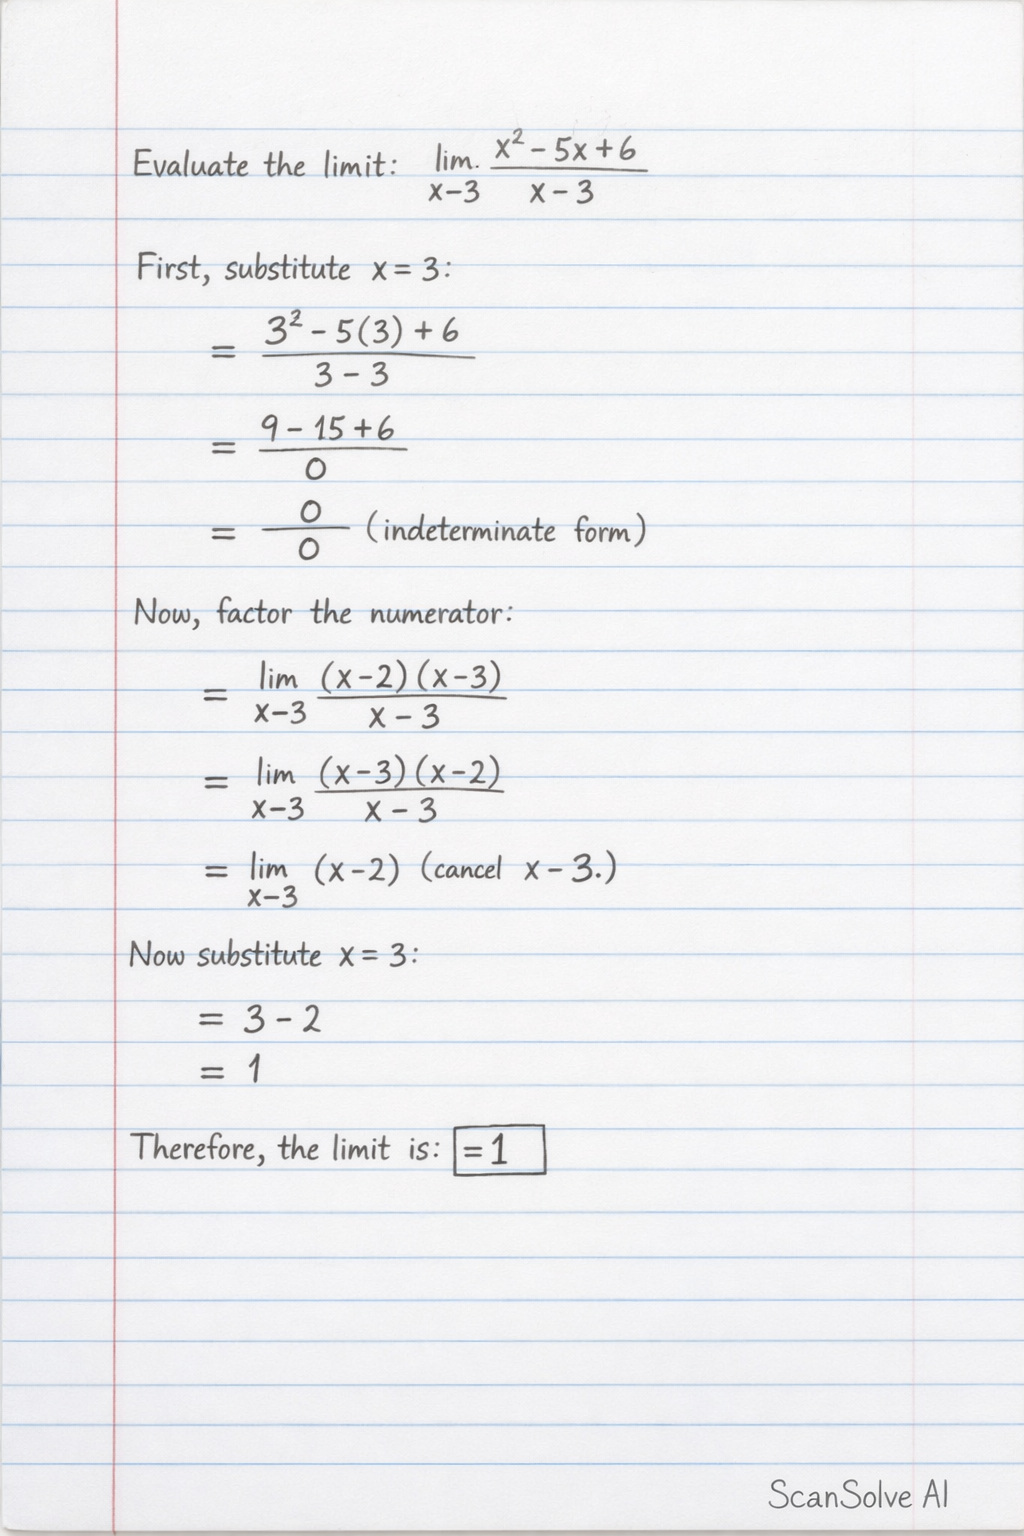 Evaluate the limit: lim. x² - 5x + 6
x-3 x - 3
First, substitute x = 3:
= 3² - 5(3) + 6
3 - 3
= 9 - 15 + 6
0
= 0 (indeterminate form)
0
Now, factor the numerator:
= lim (x-2)(x-3)
x-3 x - 3
= lim (x-3)(x-2)
x-3 x - 3
= lim (x-2) (cancel x - 3.)
x-3
Now substitute x = 3:
= 3 - 2
= 1
Therefore, the limit is: = 1
ScanSolve AI